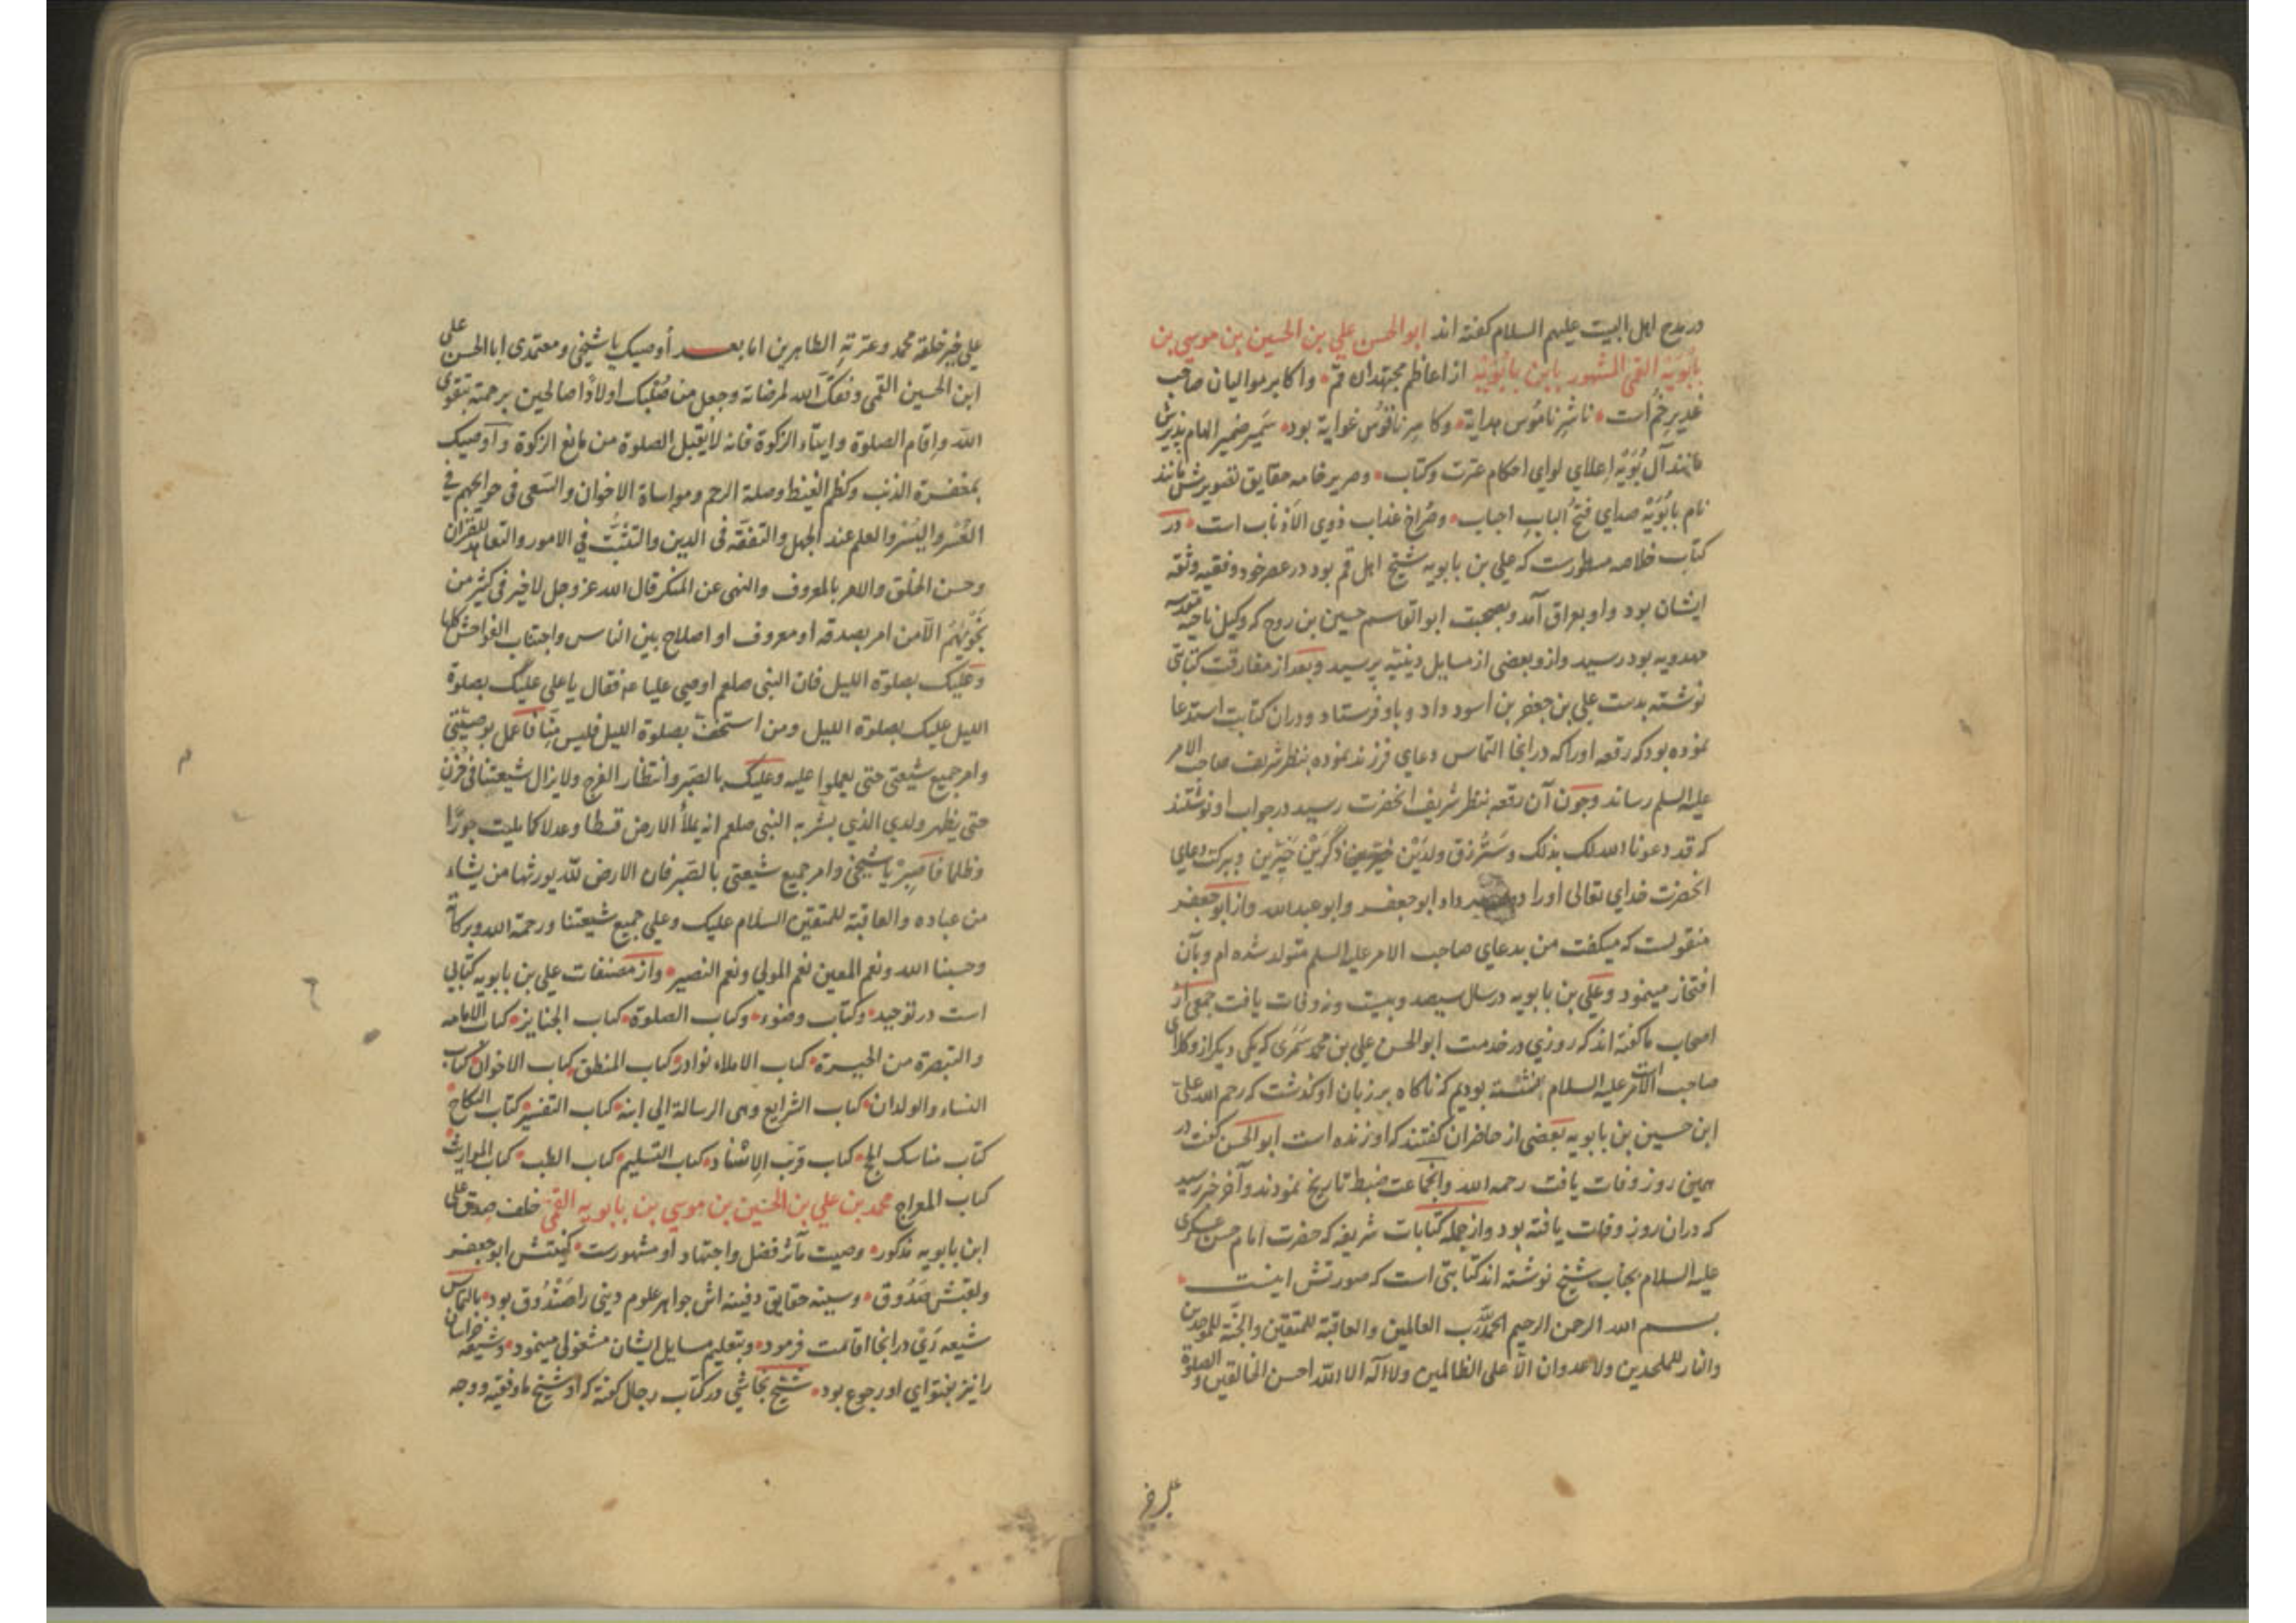 در مدح اهل البیت علیهم السلام کفته اند ابوالحسن علي بن الحسین بن موسي بن
بابُوَیْه القمی المشهور بابن بابُوَیْه از اعاظم مجتهدان قم و اکابر موالیان صاحب
غدیر خُم است ناشِر نامُوس هدایة وکاسِر ناقوُس غوایة بود سَمیر ضمیر الهام پذیرش
مانند آل بُوَیْه اِعلاي لواي احکام عترت وکتاب وصریر خامه حقایق تصویرش مانند
نام بابُوَیْه صداي فتحُ البابِ احباب وصُراخ عذاب ذوي الاَذناب است در
کتاب خلاصه مسطورست که علي بن بابویه شیخ اهل قم بود در عصر خود وفقیه وثقه
ایشان بود واو بعراق آمد وبصحبت ابوالقاسم حسین بن روح که وکیل ناحیه مقدسه
مهدویه بود رسید وازو بعضي از مسایل دینیّه پرسید وبعد از مفارقت کتابتی
نوشته بدست علي بن جعفر بن اسود داد وباو فرستاد ودران کتابت استدعا
نموده بود که رقعه اورا که در انجا التماس دعاي فرزند نموده بنظر شریف صاحب الامر
علیه السلم رساند وچون آن رقعه بنظر شریف انحضرت رسید در جواب او نوشتند
که قد دعونا الله لک بذلک وسَتُرزق ولدَیْن ذکَرَیْن خَیّرین وببرکت دعاي
انحضرت خداي تعالی اورا دو داد ابوجعفر وابوعبدالله واز ابوجعفر
منقولست که میکفت من بدعاي صاحب الامر علیه السلم متولد شده ام وبآن
افتخار مینمود وعلی بن بابویه در سال سیصد وبیست ونه وفات یافت جمعی از
اصحاب ما کفته اند که روزي در خدمت ابوالحسن علي بن محمد سَمَری که یکی دیکر از وکلاي
صاحب الامر علیه السلام نشسته بودیم که ناکاه بر زبان او کذشت که رحم الله علی
ابن حسین بن بابویه بعضي از حاضران کفتند که او زنده است ابوالحسن کفت در
همین روز وفات یافت رحمه الله وانجماعت ضبط تاریخ نمودند وآخر خبر رسید
که دران روز وفات یافته بود واز جمله کتابات شریفه که حضرت امام حسن عسکری
علیه السلام بجناب شیخ نوشته اند کتابتی است که صورتش اینست
بسم الله الرحمن الرحیم الحمدلله رب العالمین والعاقبة للمتقین والجنّة للموحدین
والنار للملحدین ولا عدوان الاّ علی الظالمین ولا اله الا الله احسن الخالقین والصلوة
علي خیر
علي خیر خلقه محمد وعترتِهِ الطاهرین اما بعد أوصیک یا شیخي ومعتمدي ابا الحسن علی
ابن الحسین القمی وفقک الله لمرضاته وجعل من صُلبِک اولادًا صالحین برحمته بتقوی
الله واِقام الصلوة وایتاء الزکوة فانه لا یُقبل الصلوة من مانع الزکوة واُوصیک
بمغفرة الذنب وکظم الغیظ وصلة الرحم ومواساة الاخوان والسَعي في حوائجهم في
العُسر والیُسْر والعلم عند الجهل والتفقّه في الدین والتثبّت في الامور والتعاهد للقران
وحسن الخُلق والامر بالمعروف والنهي عن المنکر قال الله عز وجل لا خیر في کثیر من
نَجْویٰهُم الاّ من امر بصدقه او معروف او اصلاح بین الناس واجتناب الفواحش کلها
وعَلیک بصلوة اللیل فان النبي صلعم اوصی علیا عم فقال یا علي علیک بصلوة
اللیل علیک بصلوة اللیل ومن استخف بصلوة اللیل فلیس مِنّا فاعمل بوصیّتي
وامر جمیع شیعتي حتی یعملوا علیه وعلیک بالصَبر وانتظار الفرج ولا یزال شیعتنا في حُزن
حتی یظهر ولدي الذي بشر به النبي صلعم انه یملأ الارض قسطا وعدلا کما ملیت جورًا
وظلما فاَصبِرْ یا شیخي وامر جمیع شیعتي بالصَبر فان الارض لله یورثها من یشاء
من عباده والعاقبة للمتقین السلام علیک وعلي جمیع شیعتنا ورحمة الله وبرکاته
وحسبنا الله ونعم المعین نعم المولي ونعم النصیر واز مصنفات علي بن بابویه کتابی
است در توحید وکتاب وضوء وکتاب الصلوة کتاب الجنایز کتاب الامامه
والتبصرة من الحیرة کتاب الاملاء نوادر کتاب المنطق کتاب الاخوان کتاب
النساء والولدان کتاب الشرایع وهی الرسالة الي ابنه کتاب التفسیر کتاب النکاح
کتاب مناسک الحج کتاب قرب الاِسْناد کتاب التسلیم کتاب الطب کتاب المواریث
کتاب المعراج محمد بن علي بن الحسین بن موسي بن بابویه القمي خلف صدق علی
ابن بابویه مذکور وصیت مآثر فضل واجتهاد او مشهورست کنیتش ابوجعفر
ولقبش صَدُوق وسینه حقایق دفینه اش جواهر علوم دیني را صَنْدُوق بود بالتماس
شیعه رَيْ در انجا اقامت فرمود وبتعلیم مسایل ایشان مشغولي مینمود وشیعه خراسان
را نیز بفتواي او رجوع بود شیخ نجاشي در کتاب رجال کفته که او شیخ ما وفقیه ووجه